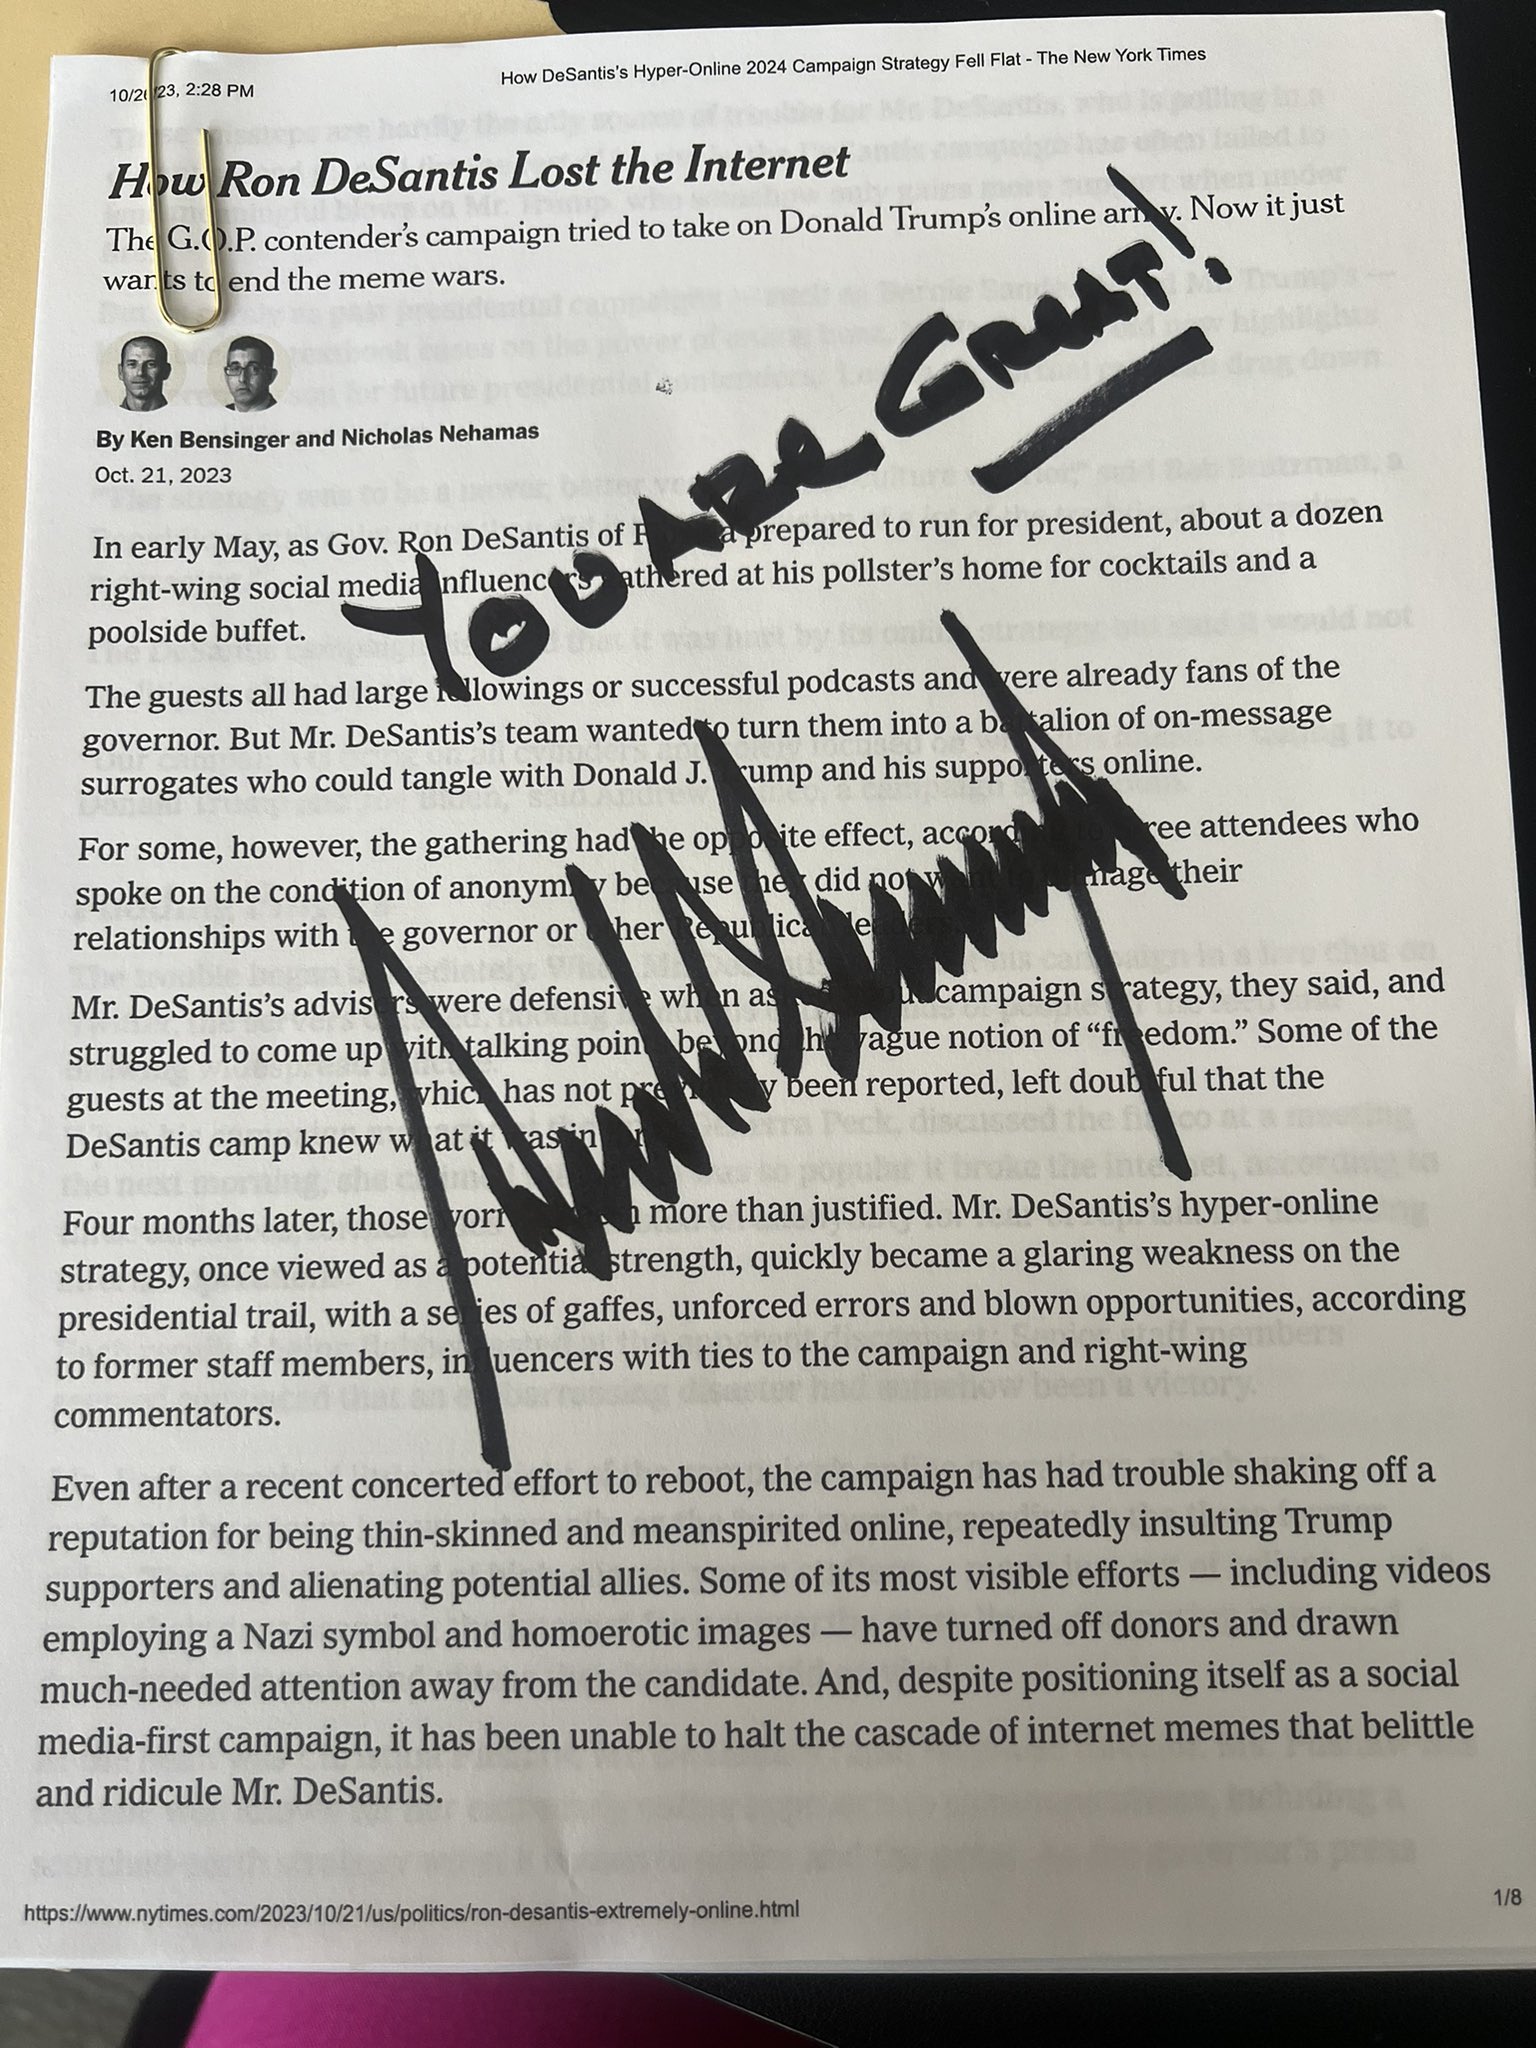 10/2 23, 2:28 PM
How DeSantis's Hyper-Online 2024 Campaign Strategy Fell Flat - The New York Times
How Ron DeSantis Lost the Internet
The G.O.P. contender's campaign tried to take on Donald Trump's online army. Now it just
wants to end the meme wars.
YOU ARE GREAT!
By Ken Bensinger and Nicholas Nehamas
Oct. 21, 2023
In early May, as Gov. Ron DeSantis of Florida prepared to run for president, about a dozen
right-wing social media influencers gathered at his pollster's home for cocktails and a
poolside buffet.
The guests all had large followings or successful podcasts and were already fans of the
governor. But Mr. DeSantis's team wanted to turn them into a battalion of on-message
surrogates who could tangle with Donald J. Trump and his supporters online.
For some, however, the gathering had the opposite effect, according to three attendees who
spoke on the condition of anonymity because they did not want to damage their
relationships with the governor or other Republican leaders.
Mr. DeSantis's advisers were defensive when asked about campaign strategy, they said, and
struggled to come up with talking points beyond the vague notion of “freedom.” Some of the
guests at the meeting, which has not previously been reported, left doubtful that the
DeSantis camp knew what it was in for.
Four months later, those worries seem more than justified. Mr. DeSantis's hyper-online
strategy, once viewed as a potential strength, quickly became a glaring weakness on the
presidential trail, with a series of gaffes, unforced errors and blown opportunities, according
to former staff members, influencers with ties to the campaign and right-wing
commentators.
Even after a recent concerted effort to reboot, the campaign has had trouble shaking off a
reputation for being thin-skinned and meanspirited online, repeatedly insulting Trump
supporters and alienating potential allies. Some of its most visible efforts — including videos
employing a Nazi symbol and homoerotic images — have turned off donors and drawn
much-needed attention away from the candidate. And, despite positioning itself as a social
media-first campaign, it has been unable to halt the cascade of internet memes that belittle
and ridicule Mr. DeSantis.
https://www.nytimes.com/2023/10/21/us/politics/ron-desantis-extremely-online.html
1/8